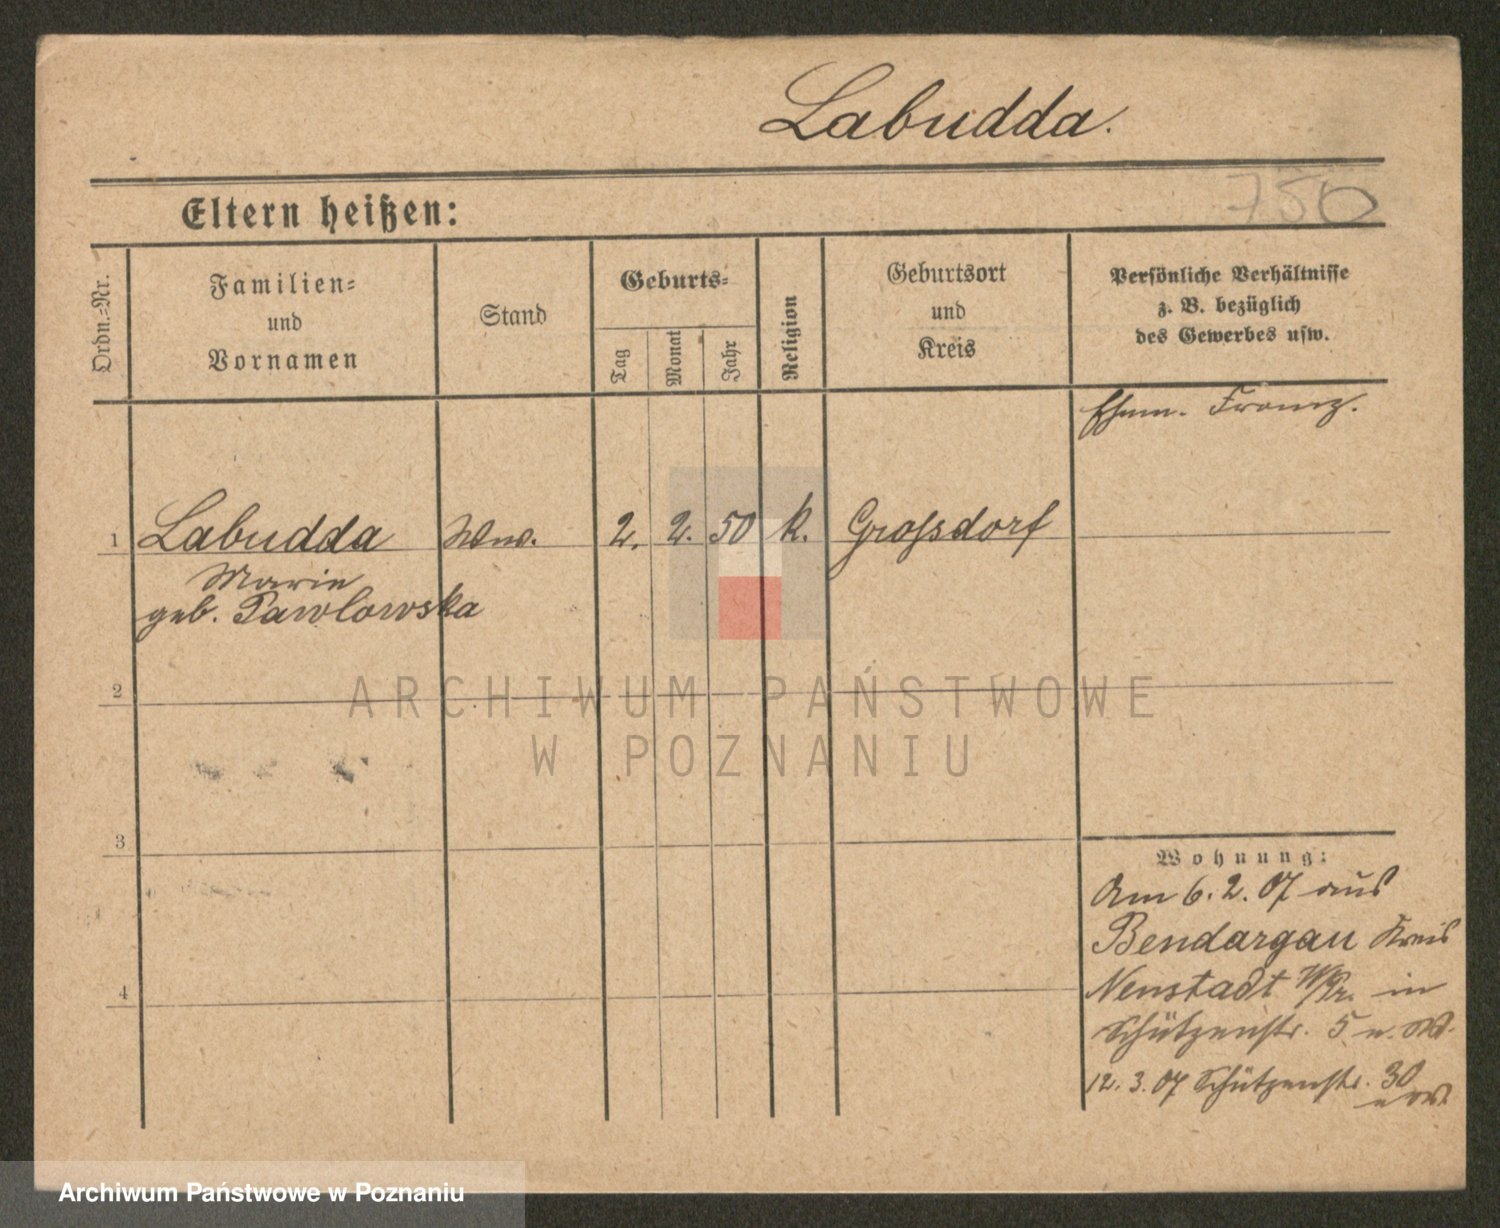 Labudda.
750
Eltern heißen:
Ordn.-Nr.
Familien-
und
Vornamen
Stand
Geburts-
Tag
Monat
Jahr
Religion
Geburtsort
und
Kreis
Persönliche Verhältnisse
z. B. bezüglich
des Gewerbes usw.
Ehem. Franz.
1 Labudda Ww. 2. 2. 50 k. Grossdorf
Marie
geb. Pawlowska
2
3
4
Wohnung:
Am 6. 2. 07 aus
Bendargau Kreis
Neustadt W/Pr. in
Schützenstr. 5 n. W.
12. 3. 07 Schützenstr. 30
ARCHIWUM PAŃSTWOWE
W POZNANIU
Archiwum Państwowe w Poznaniu